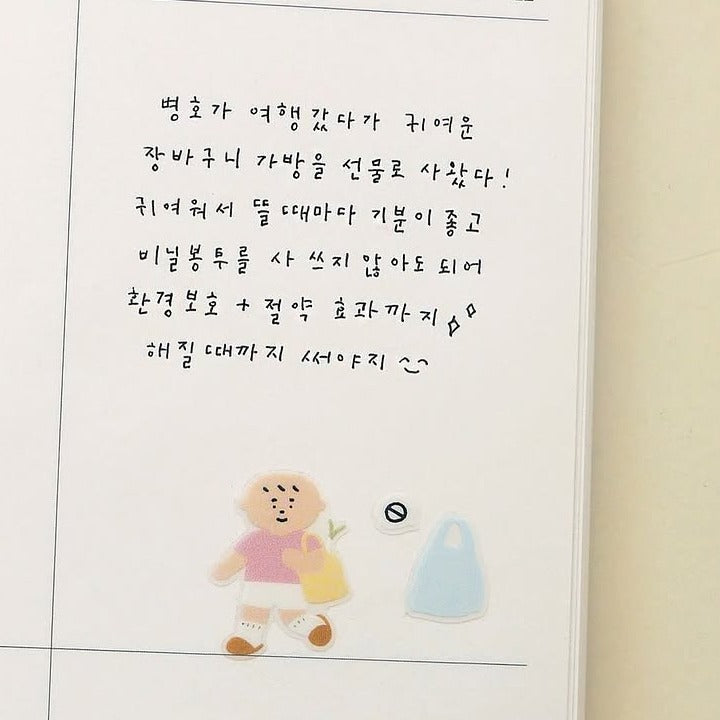 병호가 여행갔다가 귀여운
장바구니 가방을 선물로 사왔다!
귀여워서 뜰 때마다 기분이 좋고
비닐봉투를 사 쓰지 않아도 되어
환경보호 + 절약 효과까지
해질때까지 써야지